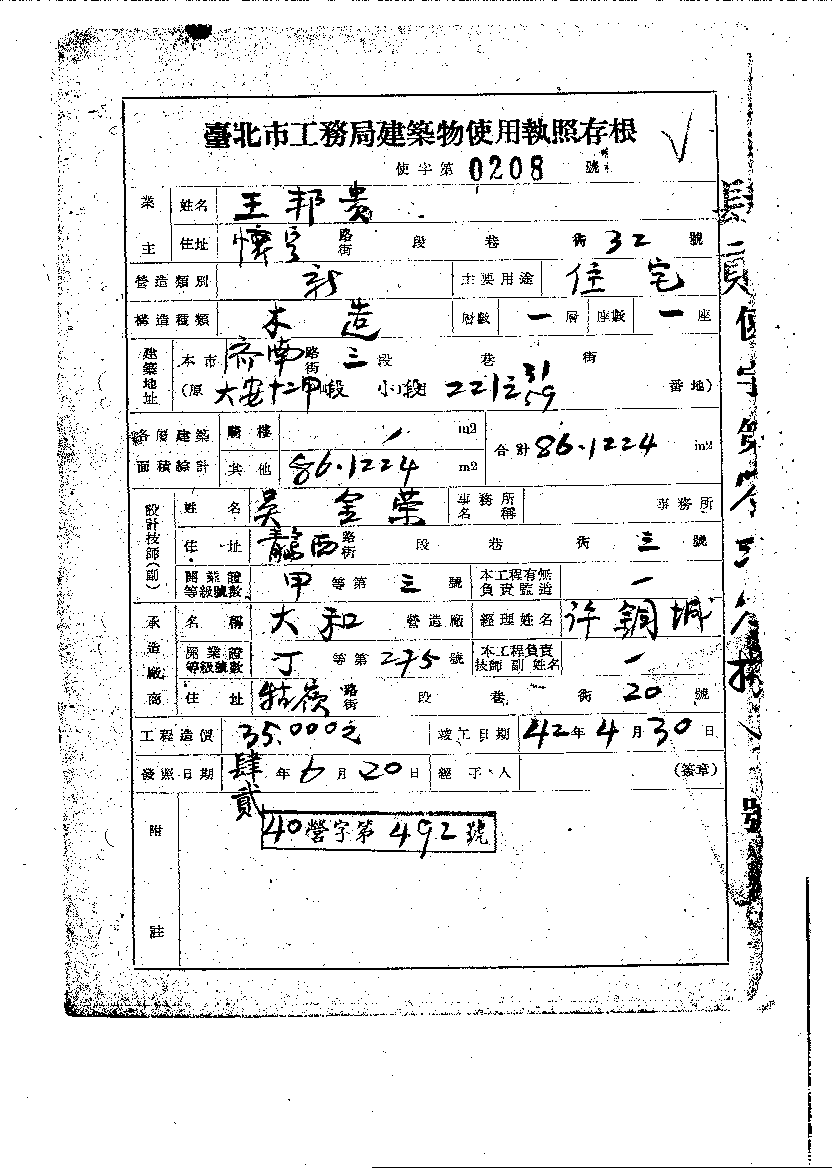 臺北市工務局建築物使用執照存根
使字第 0208 號
業主 姓名 王邦貴
住址 懷寧 路街 段 巷 街 32 號
營造類別 新 主要用途 住宅
構造種類 木造 層數 一 層 座數 一 座
建築地址 本市 濟南 路街 三 段 巷 街
(原 大安十二甲 段 小段 221 番地)
各層建築面積綜計 騎樓 m2 合計 86.1224 m2
其他 86.1224 m2
設計技師(副) 姓名 吳金榮 事務所名稱 事務所
住址 西 路街 段 巷 街 三 號
開業證等級號數 甲 等第 三 號 本工程有無負責監造 一
承造廠商 名稱 大和 營造廠 經理姓名 許銅城
開業證等級號數 丁 等第 275 號 本工程負責技師副姓名 一
住址 牯嶺 路街 段 巷 街 20 號
工程造價 35.000元 竣工日期 42年 4月 30日
發照日期 肆貳 年 6 月 20 日 經手人 (簽章)
附註
40營字第492號